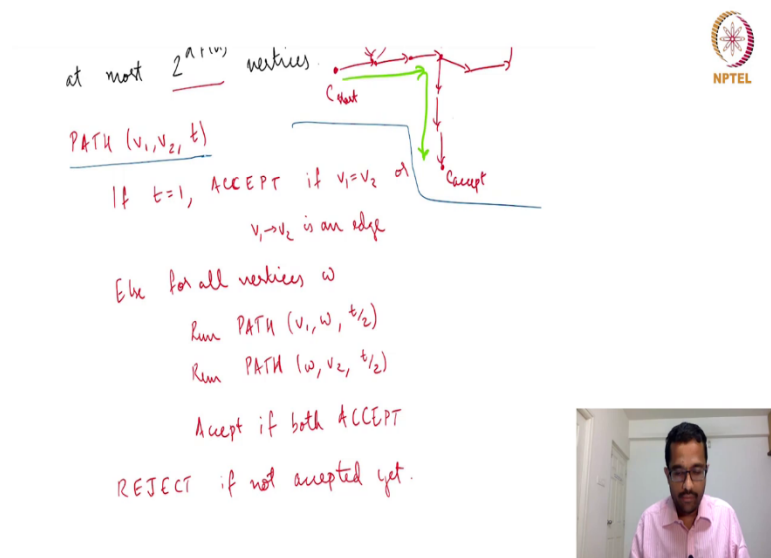 at most 2 vertices.
C start
NPTEL
PATH (v₁, v₂, t)
C accept
If t=1, ACCEPT if v₁=v₂ or
v₁→v₂ is an edge
Else for all vertices w
Run PATH (v₁, w, t/2)
Run PATH (w, v₂, t/2)
Accept if both ACCEPT
REJECT if not accepted yet.